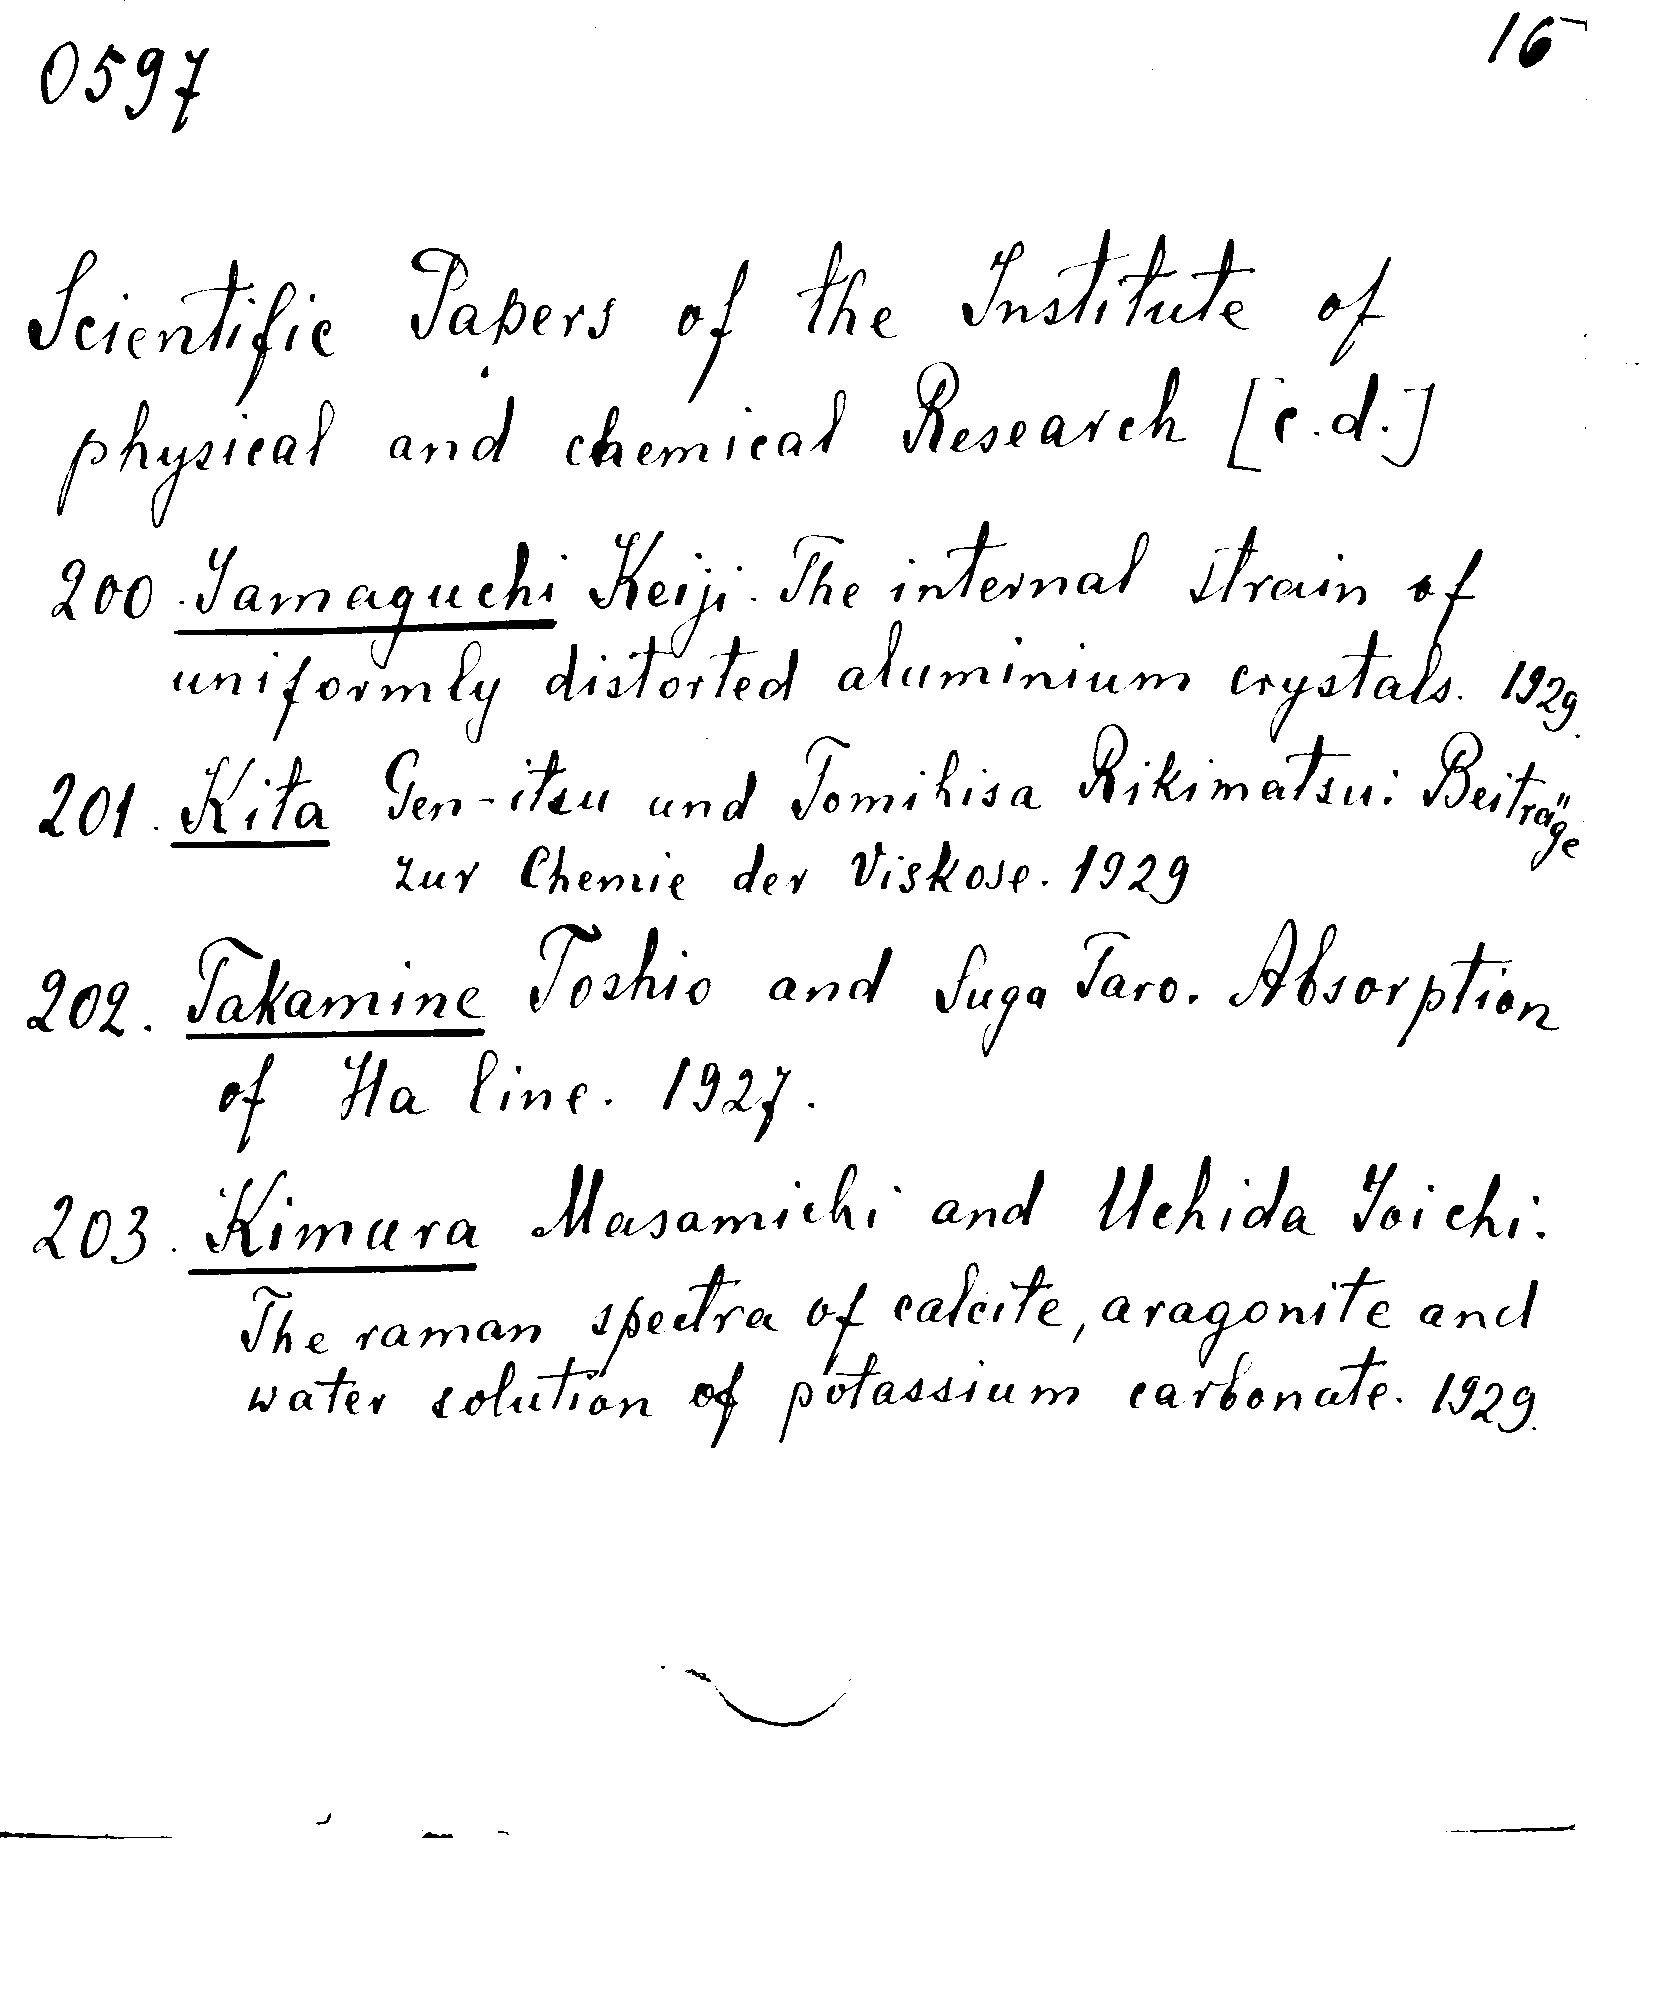 0597
16
Scientific Papers of the Institute of
physical and chemical Research [c.d.]
200. Yamaguchi Keiji. The internal strain of
uniformly distorted aluminium crystals. 1929.
201. Kita Gen-itsu und Tomihisa Rikimatsu: Beiträge
zur Chemie der Viskose. 1929
202. Takamine Toshio and Suga Taro. Absorption
of Ha line. 1927.
203. Kimura Masamichi and Uchida Yoichi:
The raman spectra of calcite, aragonite and
water solution of potassium carbonate. 1929.